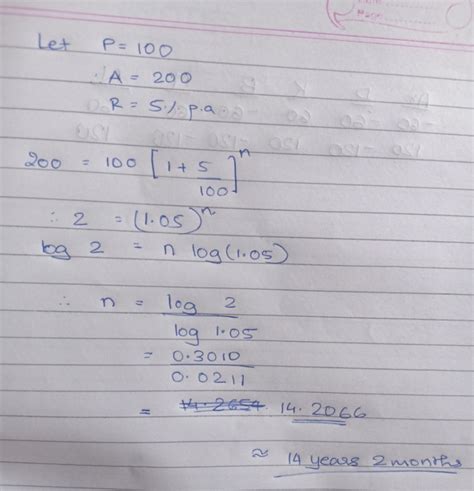 Let P = 100
∴ A = 200
R = 5% p.a
200 = 100 [1 + 5/100]^n
∴ 2 = (1.05)^n
log 2 = n log(1.05)
∴ n = log 2 / log 1.05
= 0.3010 / 0.0211
= 14.2654 14.2066
≈ 14 years 2 months